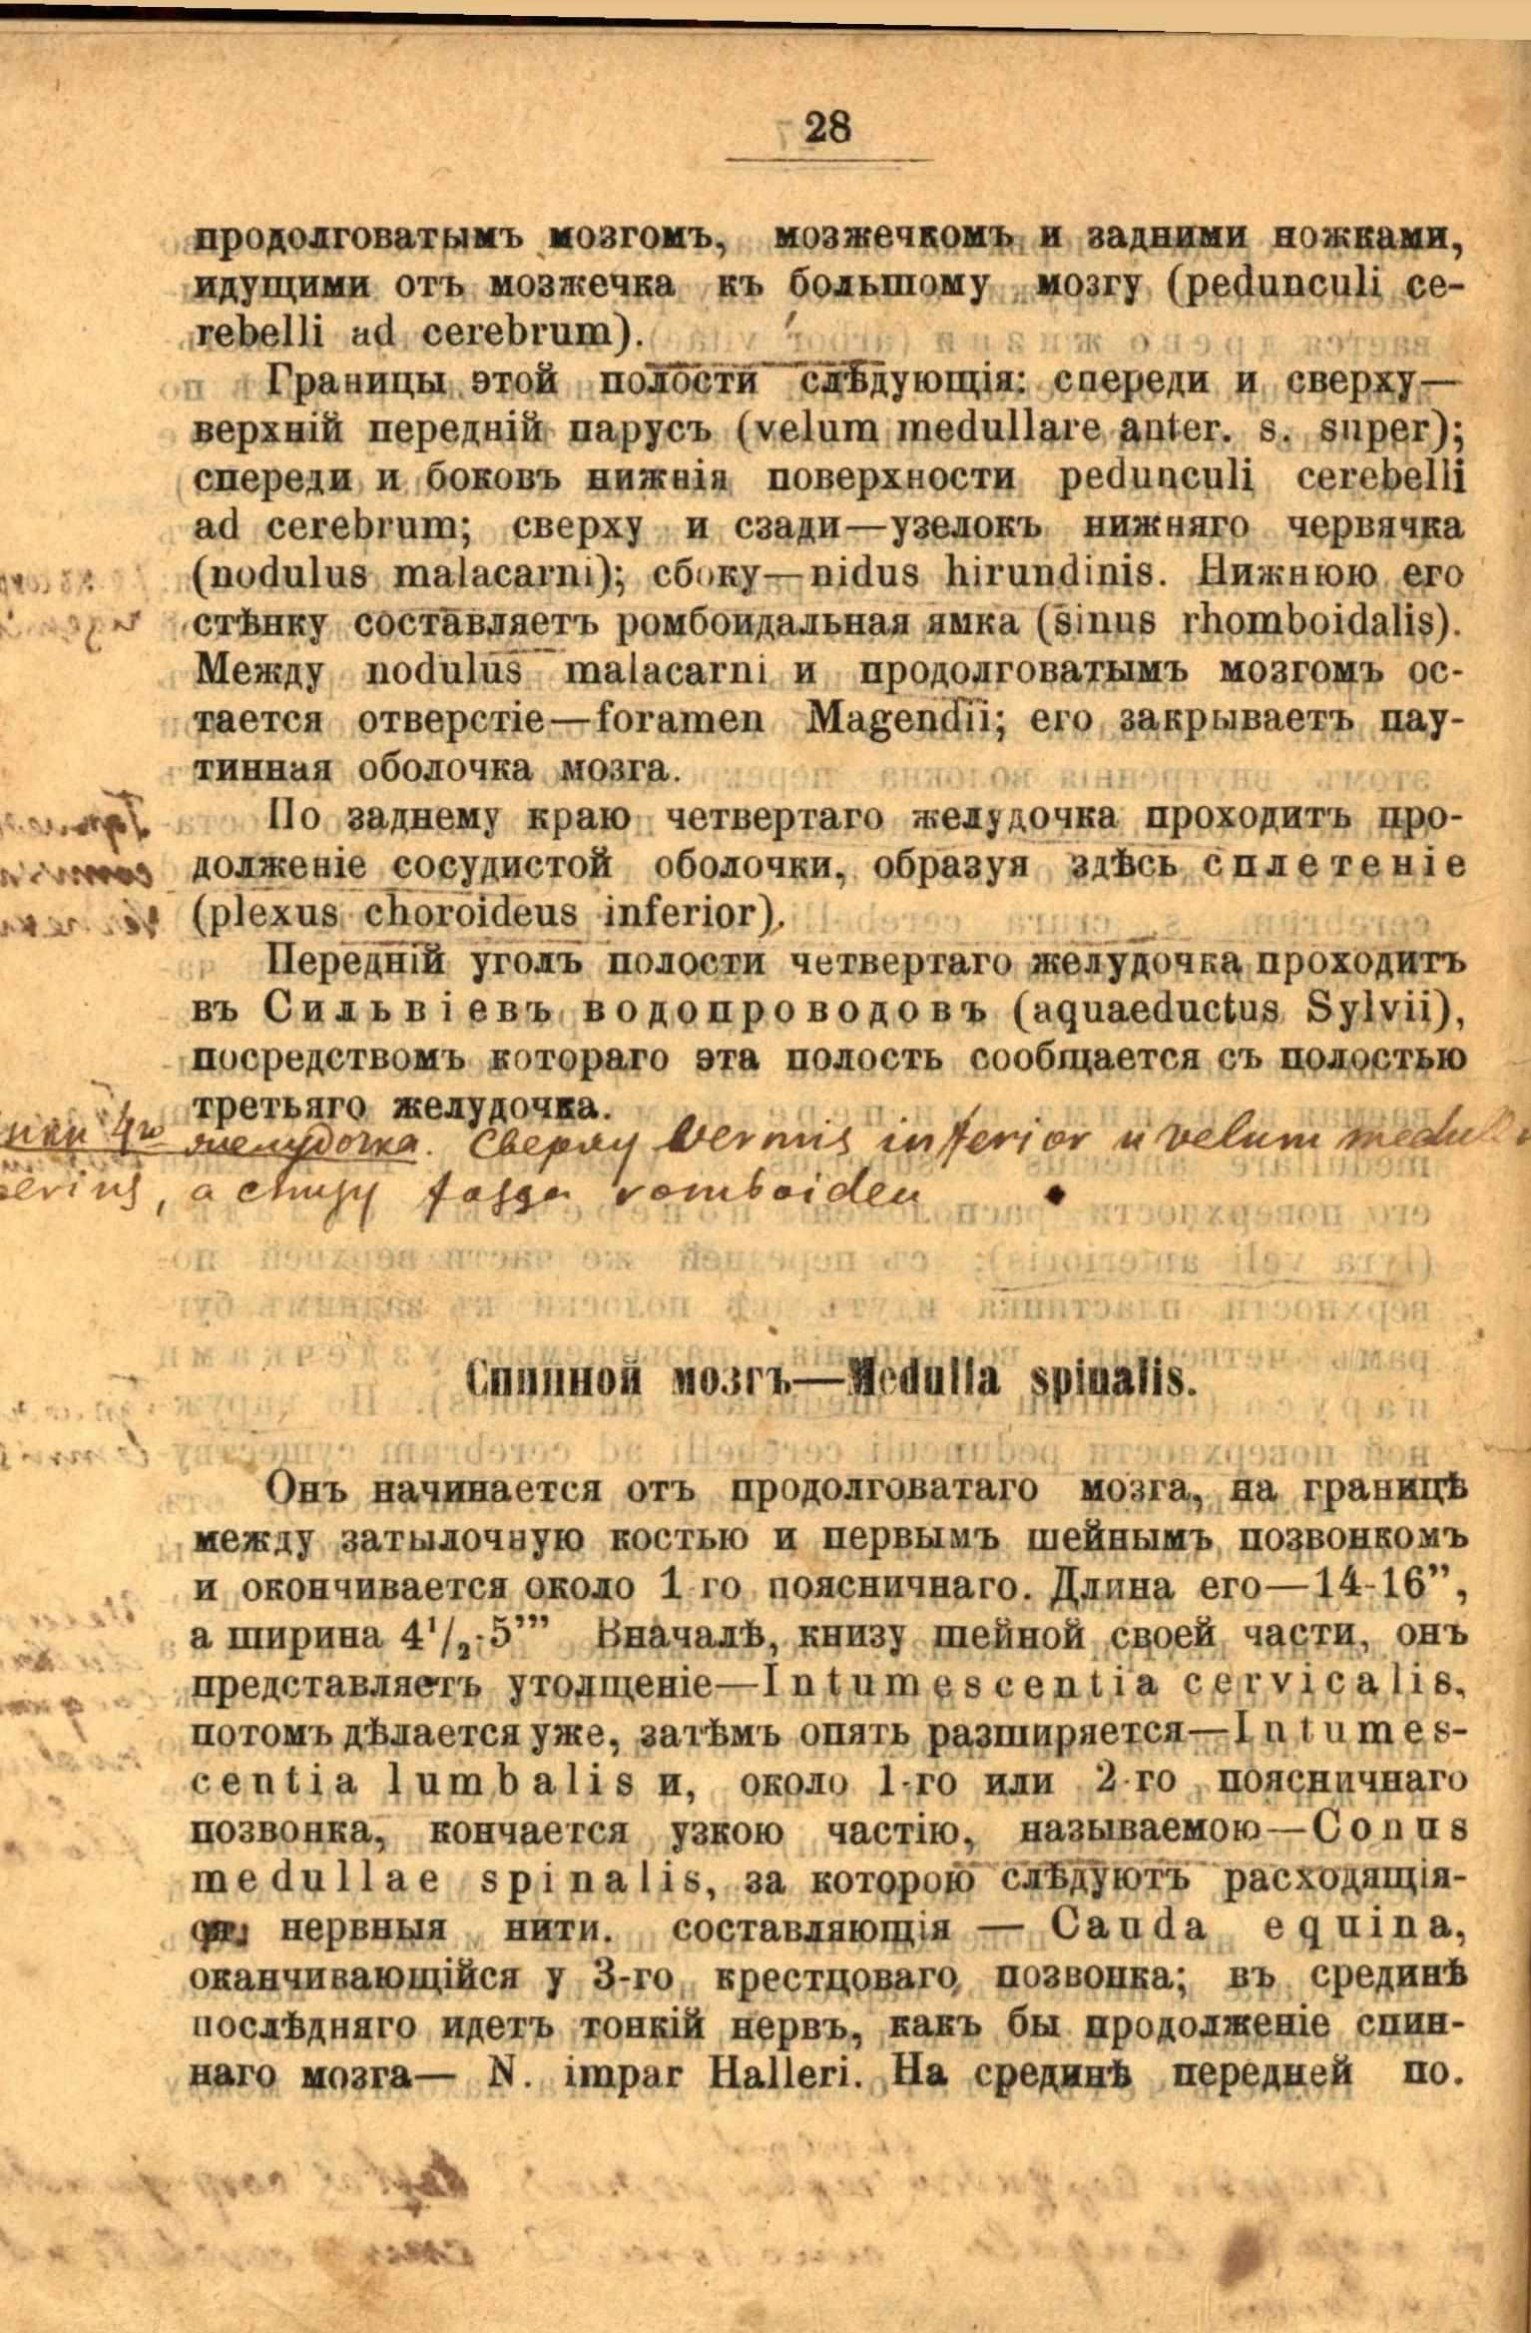 28
продолговатымъ мозгомъ, мозжечкомъ и задними ножками,
идущими отъ мозжечка къ большому мозгу (pedunculi ce-
rebelli ad cerebrum).
Границы этой полости слѣдующія: спереди и сверху—
верхній передній парусъ (velum medullare anter. s. super);
спереди и боковъ нижнія поверхности pedunculi cerebelli
ad cerebrum; сверху и сзади—узелокъ нижняго червячка
(nodulus malacarni); сбоку—nidus hirundinis. Нижнюю его
стѣнку составляетъ ромбоидальная ямка (sinus rhomboidalis).
Между nodulus malacarni и продолговатымъ мозгомъ ос-
тается отверстіе—foramen Magendii; его закрываетъ пау-
тинная оболочка мозга.
По заднему краю четвертаго желудочка проходитъ про-
долженіе сосудистой оболочки, образуя здѣсь сплетеніе
(plexus choroideus inferior).
Передній уголъ полости четвертаго желудочка проходитъ
въ Сильвіевъ водопроводовъ (aquaeductus Sylvii),
посредствомъ котораго эта полость сообщается съ полостью
третьяго желудочка.
желудочка. Сверху vermis inferior и velum
а снизу fossa romboidea
Спинной мозгъ—Medulla spinalis.
Онъ начинается отъ продолговатаго мозга, на границѣ
между затылочную костью и первымъ шейнымъ позвонкомъ
и окончивается около 1 го поясничнаго. Длина его—14-16”,
а ширина 4¹/₂-5”’ Вначалѣ, книзу шейной своей части, онъ
представляетъ утолщеніе—Intumescentia cervicalis,
потомъ дѣлается уже, затѣмъ опять разширяется—Intumes-
centia lumbalis и, около 1-го или 2-го поясничнаго
позвонка, кончается узкою частію, называемою—Conus
medullae spinalis, за которою слѣдуютъ расходящія-
ся нервныя нити. составляющія — Cauda equina,
оканчивающійся у 3-го крестцоваго позвонка; въ срединѣ
послѣдняго идетъ тонкій нервъ, какъ бы продолженіе спин-
наго мозга— N. impar Halleri. На срединѣ передней по.